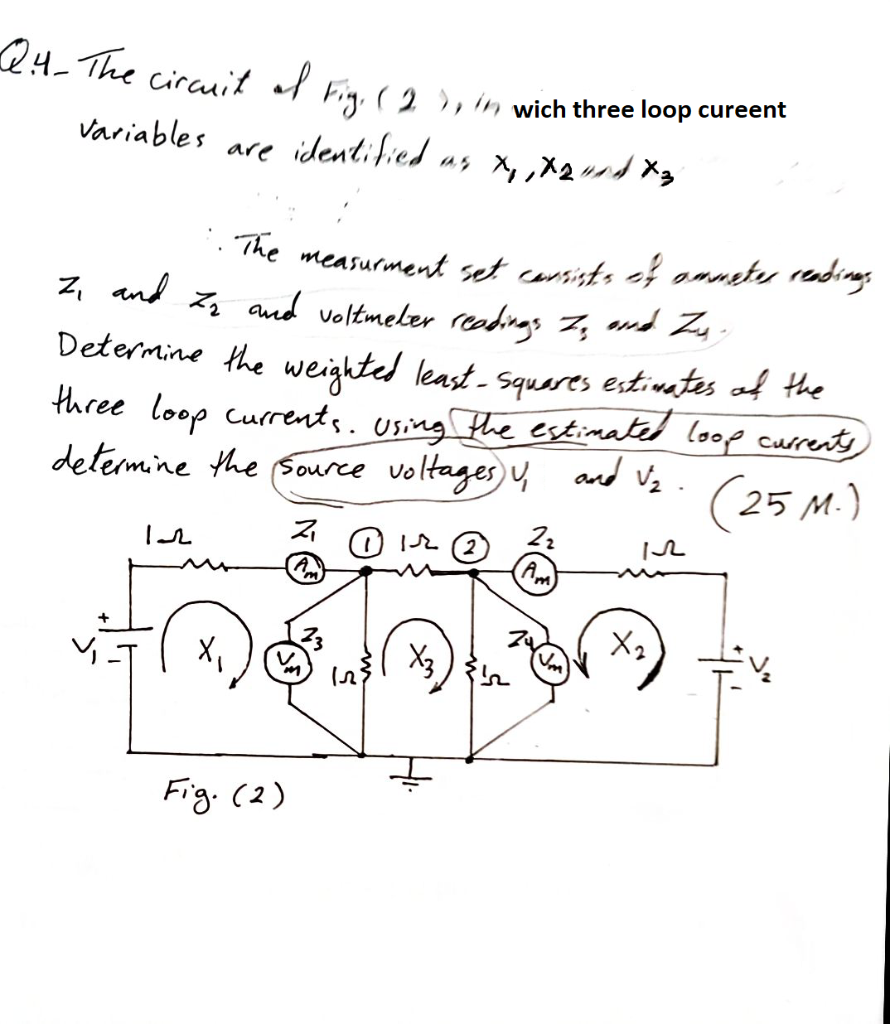 Q.4- The circuit of Fig. (2), in wich three loop cureent
Variables are identified as X₁, X₂ and X₃
The measurment set consists of ammeter readings
Z₁ and Z₂ and voltmeter readings Z₃ and Z₄.
Determine the weighted least-squares estimates of the
three loop currents. using the estimated loop currents
determine the source voltages V₁ and V₂. (25 M.)
1Ω Z₁ ① 1Ω ② Z₂ 1Ω
Am Am
+ V₁ - X₁ Z₃ Vm 1Ω X₃ 1Ω Z₄ Vm X₂ + V₂ -
Fig. (2)